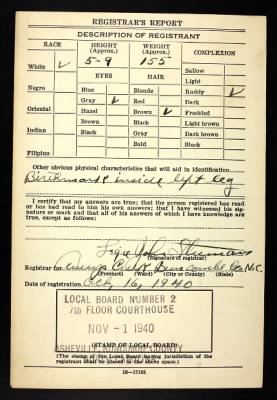 REGISTRAR'S REPORT
DESCRIPTION OF REGISTRANT
RACE
HEIGHT
(Approx.)
WEIGHT
(Approx.)
COMPLEXION
White ✓
5-9
155
Sallow
EYES
HAIR
Light
Negro
Blue
Blonde
Ruddy ✓
Gray ✓
Red
Dark
Oriental
Hazel
Brown ✓
Freckled
Brown
Black
Light brown
Indian
Black
Gray
Dark brown
Bald
Black
Filipino
Other obvious physical characteristics that will aid in identification
Birthmark inside left leg
I certify that my answers are true; that the person registered has read
or has had read to him his own answers; that I have witnessed his sig-
nature or mark and that all of his answers of which I have knowledge are
true, except as follows:
(Signature of registrar)
Registrar for Creek Buncombe Co N.C.
(Precinct) (Ward) (City or County) (State)
Date of registration Oct, 16, 1940
LOCAL BOARD NUMBER 2
7th FLOOR COURTHOUSE
NOV -1 1940
ASHEVILLE, BUNCOMBE COUNTY
(STAMP OF LOCAL BOARD)
(The stamp of the Local Board having jurisdiction of the
registrant shall be placed in the above space.)
16-17105